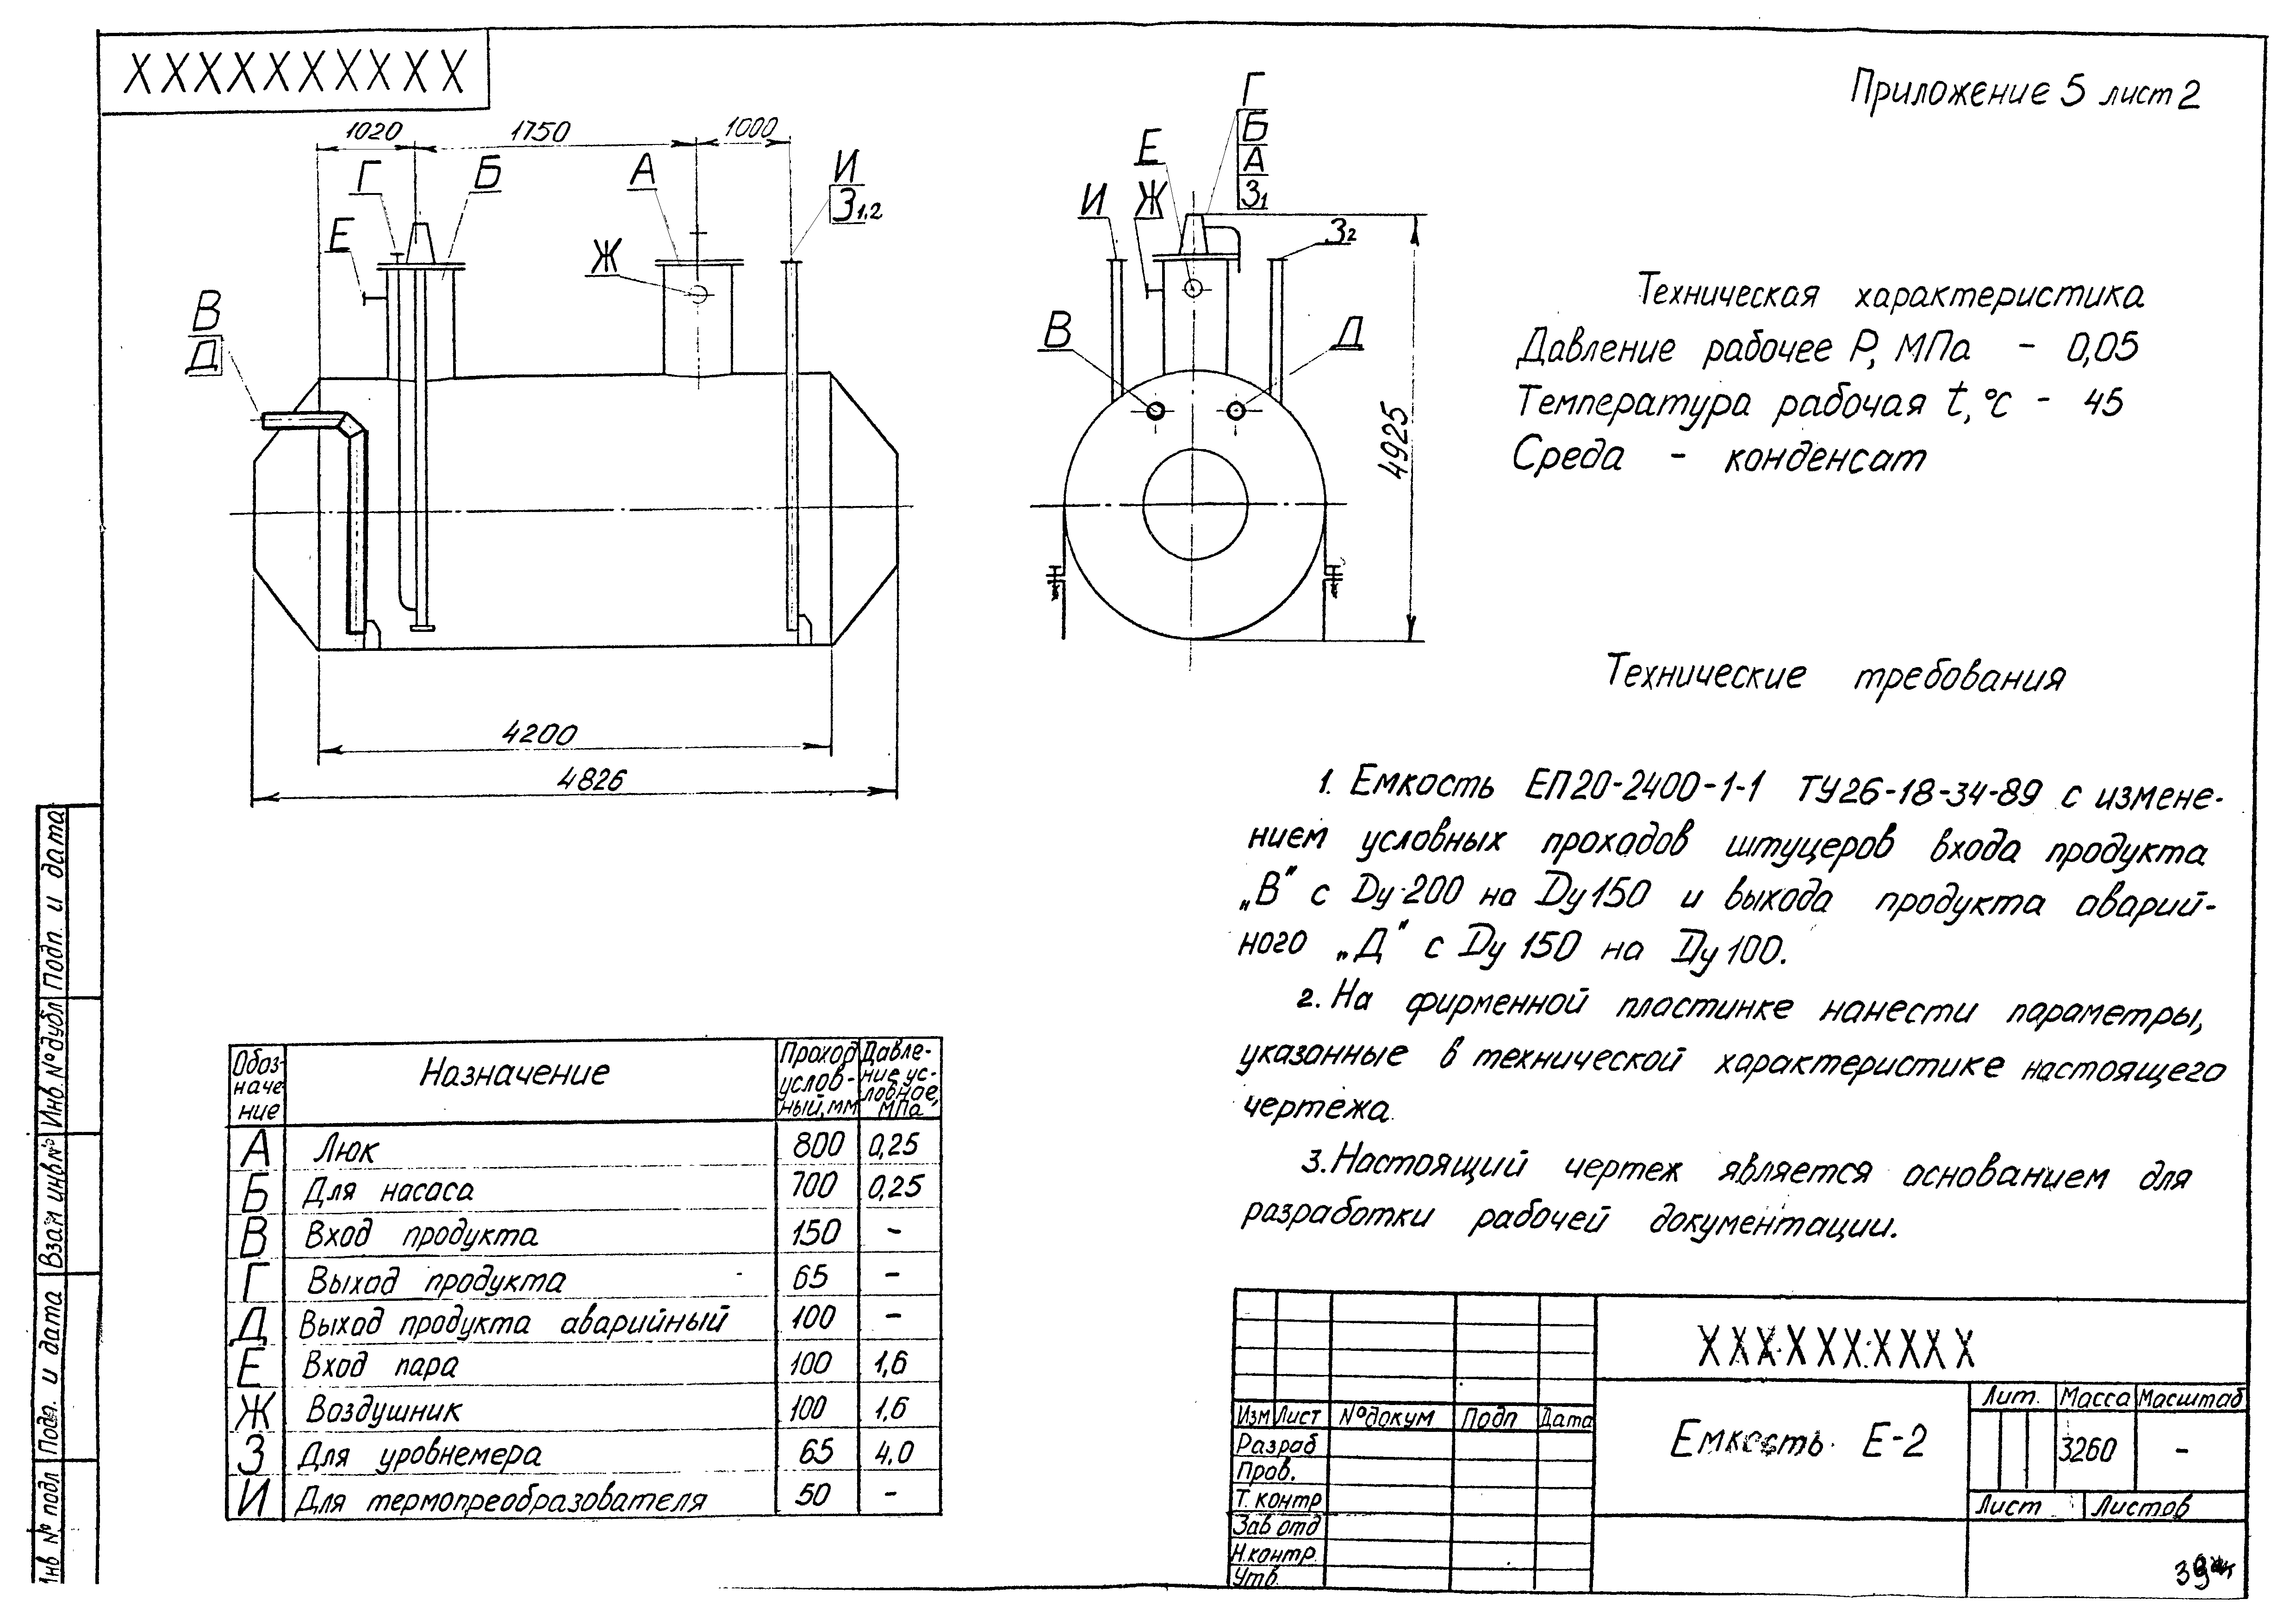 XXXXXXXXXX
Приложение 5 лист 2
1020
1750
1000
Г
Б
А
И
З1,2
Е
Ж
В
Д
4200
4826
Г
Б
А
З1
Е
Ж
И
З2
В
Д
4925
Техническая характеристика
Давление рабочее Р, МПа - 0,05
Температура рабочая t, °С - 45
Среда - конденсат
Технические требования
1. Емкость ЕП20-2400-1-1 ТУ26-18-34-89 с измене-
нием условных проходов штуцеров входа продукта
„В" с Dу 200 на Dу 150 и выхода продукта аварий-
ного „Д" с Dу 150 на Dу 100.
2. На фирменной пластинке нанести параметры,
указанные в технической характеристике настоящего
чертежа.
3. Настоящий чертеж является основанием для
разработки рабочей документации.
Обоз-
наче
ние
Назначение
Проход
услов-
ный, мм
Давле-
ние ус-
ловное,
МПа
А Люк 800 0,25
Б Для насоса 700 0,25
В Вход продукта 150 -
Г Выход продукта 65 -
Д Выход продукта аварийный 100 -
Е Вход пара 100 1,6
Ж Воздушник 100 1,6
З Для уровнемера 65 4,0
И Для термопреобразователя 50 -
XXXXXXXXXX
Изм Лист № докум Подп Дата
Разраб
Пров.
Т. контр
Зав отд
Н.контр.
Утв.
Емкость Е-2
Лит. Масса Масштаб
3260 -
Лист Листов
Инв № подл
Подп. и дата
Взам инв №
Инв. № дубл
Подп. и дата